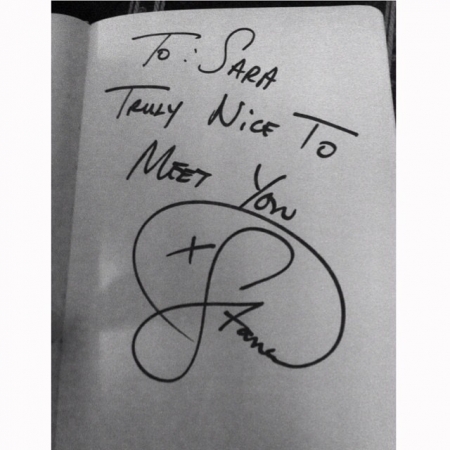 To: SARA
TRULY NICE TO
MEET YOU